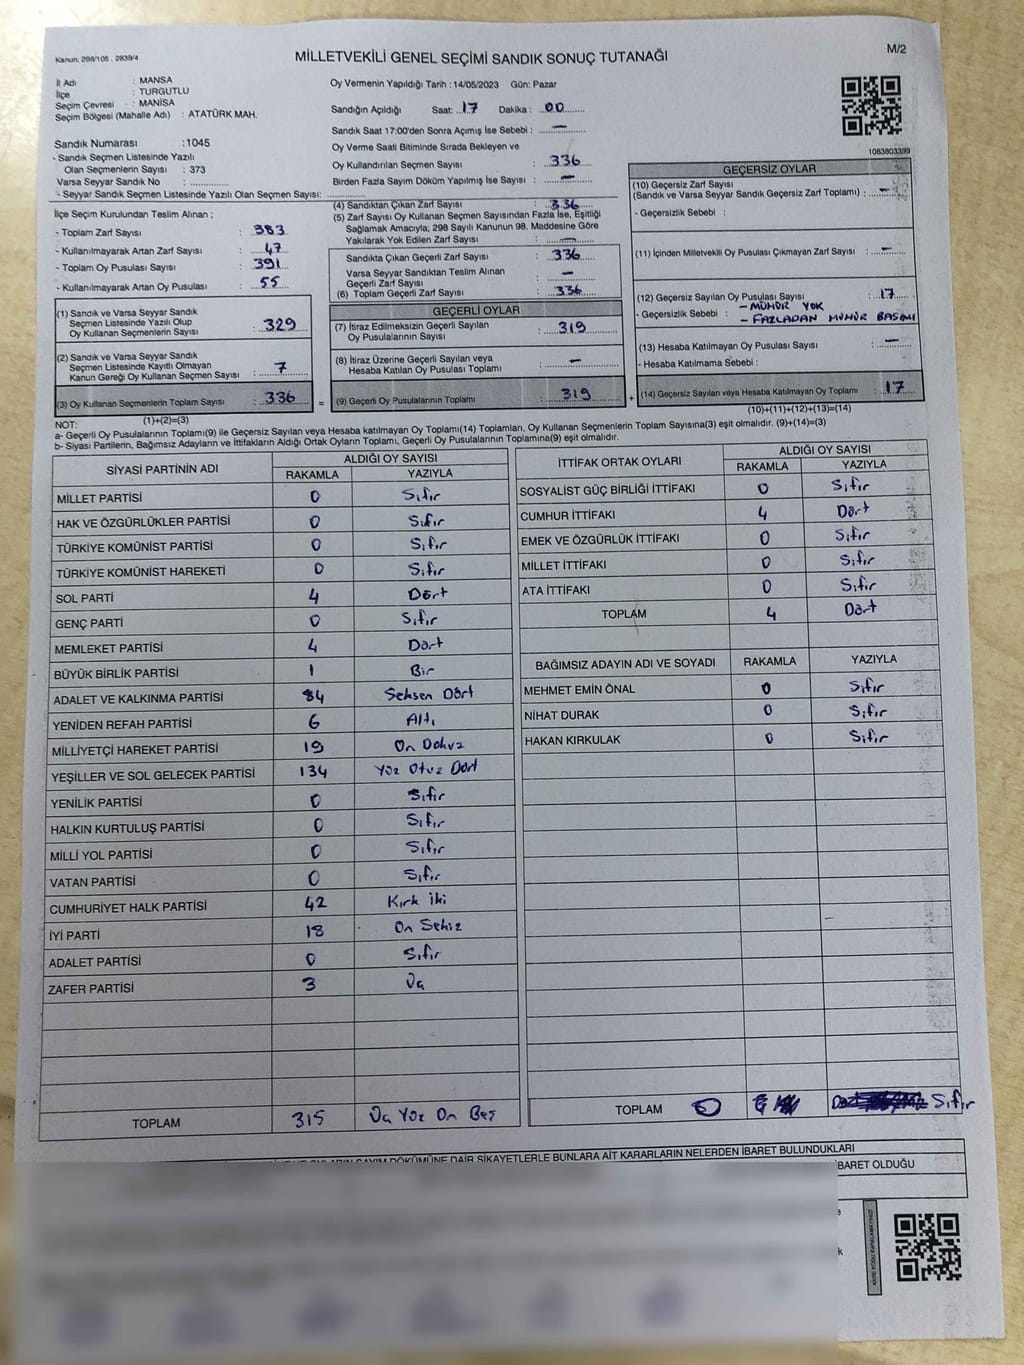 Kanun; 298/105 , 2839/4
MİLLETVEKİLİ GENEL SEÇİMİ SANDIK SONUÇ TUTANAĞI
M/2
İl Adı : MANSA
İlçe : TURGUTLU
Seçim Çevresi : MANİSA
Seçim Bölgesi (Mahalle Adı) : ATATÜRK MAH.
Sandık Numarası :1045
- Sandık Seçmen Listesinde Yazılı
Olan Seçmenlerin Sayısı : 373
Varsa Seyyar Sandık No :
- Seyyar Sandık Seçmen Listesinde Yazılı Olan Seçmen Sayısı:
Oy Vermenin Yapıldığı Tarih : 14/05/2023 Gün: Pazar
Sandığın Açıldığı Saat: 17 Dakika : 00
Sandık Saat 17:00'den Sonra Açımış İse Sebebi : —
Oy Verme Saati Bitiminde Sırada Bekleyen ve
Oy Kullandırılan Seçmen Sayısı : 336
Birden Fazla Sayım Döküm Yapılmış İse Sayısı : —
1083803399
İlçe Seçim Kurulundan Teslim Alınan ;
- Toplam Zarf Sayısı : 383
- Kullanılmayarak Artan Zarf Sayısı : 47
- Toplam Oy Pusulası Sayısı : 391
- Kullanılmayarak Artan Oy Pusulası : 55
(1) Sandık ve Varsa Seyyar Sandık
Seçmen Listesinde Yazılı Olup
Oy Kullanan Seçmenlerin Sayısı : 329
(2) Sandık ve Varsa Seyyar Sandık
Seçmen Listesinde Kayıtlı Olmayan
Kanun Gereği Oy Kullanan Seçmen Sayısı : 7
(3) Oy Kullanan Seçmenlerin Toplam Sayısı : 336
(1)+(2)=(3)
(4) Sandıktan Çıkan Zarf Sayısı : 336
(5) Zarf Sayısı Oy Kullanan Seçmen Sayısından Fazla İse, Eşitliği
Sağlamak Amacıyla; 298 Sayılı Kanunun 98. Maddesine Göre
Yakılarak Yok Edilen Zarf Sayısı : —
Sandıkta Çıkan Geçerli Zarf Sayısı : 336
Varsa Seyyar Sandıktan Teslim Alınan
Geçerli Zarf Sayısı : —
(6) Toplam Geçerli Zarf Sayısı : 336
GEÇERLİ OYLAR
(7) İtiraz Edilmeksizin Geçerli Sayılan
Oy Pusulalarının Sayısı : 319
(8) İtiraz Üzerine Geçerli Sayılan veya
Hesaba Katılan Oy Pusulası Toplamı : —
= (9) Geçerli Oy Pusulalarının Toplamı : 319
GEÇERSİZ OYLAR
(10) Geçersiz Zarf Sayısı
(Sandık ve Varsa Seyyar Sandık Geçersiz Zarf Toplamı) : —
- Geçersizlik Sebebi :
(11) İçinden Milletvekili Oy Pusulası Çıkmayan Zarf Sayısı : —
(12) Geçersiz Sayılan Oy Pusulası Sayısı : 17
- MÜHÜR YOK
- Geçersizlik Sebebi : - FAZLADAN MÜHÜR BASIMI
(13) Hesaba Katılmayan Oy Pusulası Sayısı : —
- Hesaba Katılmama Sebebi :
+ (14) Geçersiz Sayılan veya Hesaba Katılmayan Oy Toplamı : 17
(10)+(11)+(12)+(13)=(14)
NOT:
a- Geçerli Oy Pusulalarının Toplamı(9) ile Geçersiz Sayılan veya Hesaba katılmayan Oy Toplamı(14) Toplamları, Oy Kullanan Seçmenlerin Toplam Sayısına(3) eşit olmalıdır. (9)+(14)=(3)
b- Siyasi Partilerin, Bağımsız Adayların ve İttifakların Aldığı Ortak Oyların Toplamı, Geçerli Oy Pusulalarının Toplamına(9) eşit olmalıdır.
SİYASİ PARTİNİN ADI ALDIĞI OY SAYISI
RAKAMLA YAZIYLA
MİLLET PARTİSİ 0 Sıfır
HAK VE ÖZGÜRLÜKLER PARTİSİ 0 Sıfır
TÜRKİYE KOMÜNİST PARTİSİ 0 Sıfır
TÜRKİYE KOMÜNİST HAREKETİ 0 Sıfır
SOL PARTİ 4 Dört
GENÇ PARTİ 0 Sıfır
MEMLEKET PARTİSİ 4 Dört
BÜYÜK BİRLİK PARTİSİ 1 Bir
ADALET VE KALKINMA PARTİSİ 84 Seksen Dört
YENİDEN REFAH PARTİSİ 6 Altı
MİLLİYETÇİ HAREKET PARTİSİ 19 On Dokuz
YEŞİLLER VE SOL GELECEK PARTİSİ 134 Yüz Otuz Dört
YENİLİK PARTİSİ 0 Sıfır
HALKIN KURTULUŞ PARTİSİ 0 Sıfır
MİLLİ YOL PARTİSİ 0 Sıfır
VATAN PARTİSİ 0 Sıfır
CUMHURİYET HALK PARTİSİ 42 Kırk İki
İYİ PARTİ 18 On Sekiz
ADALET PARTİSİ 0 Sıfır
ZAFER PARTİSİ 3 Üç
TOPLAM 315 Üç Yüz On Beş
İTTİFAK ORTAK OYLARI ALDIĞI OY SAYISI
RAKAMLA YAZIYLA
SOSYALİST GÜÇ BİRLİĞİ İTTİFAKI 0 Sıfır
CUMHUR İTTİFAKI 4 Dört
EMEK VE ÖZGÜRLÜK İTTİFAKI 0 Sıfır
MİLLET İTTİFAKI 0 Sıfır
ATA İTTİFAKI 0 Sıfır
TOPLAM 4 Dört
BAĞIMSIZ ADAYIN ADI VE SOYADI RAKAMLA YAZIYLA
MEHMET EMİN ÖNAL 0 Sıfır
NİHAT DURAK 0 Sıfır
HAKAN KIRKULAK 0 Sıfır
TOPLAM 0 Sıfır
SAYIM DÖKÜMÜNE DAİR ŞİKAYETLERLE BUNLARA AİT KARARLARIN NELERDEN İBARET BULUNDUKLARI
İBARET OLDUĞU